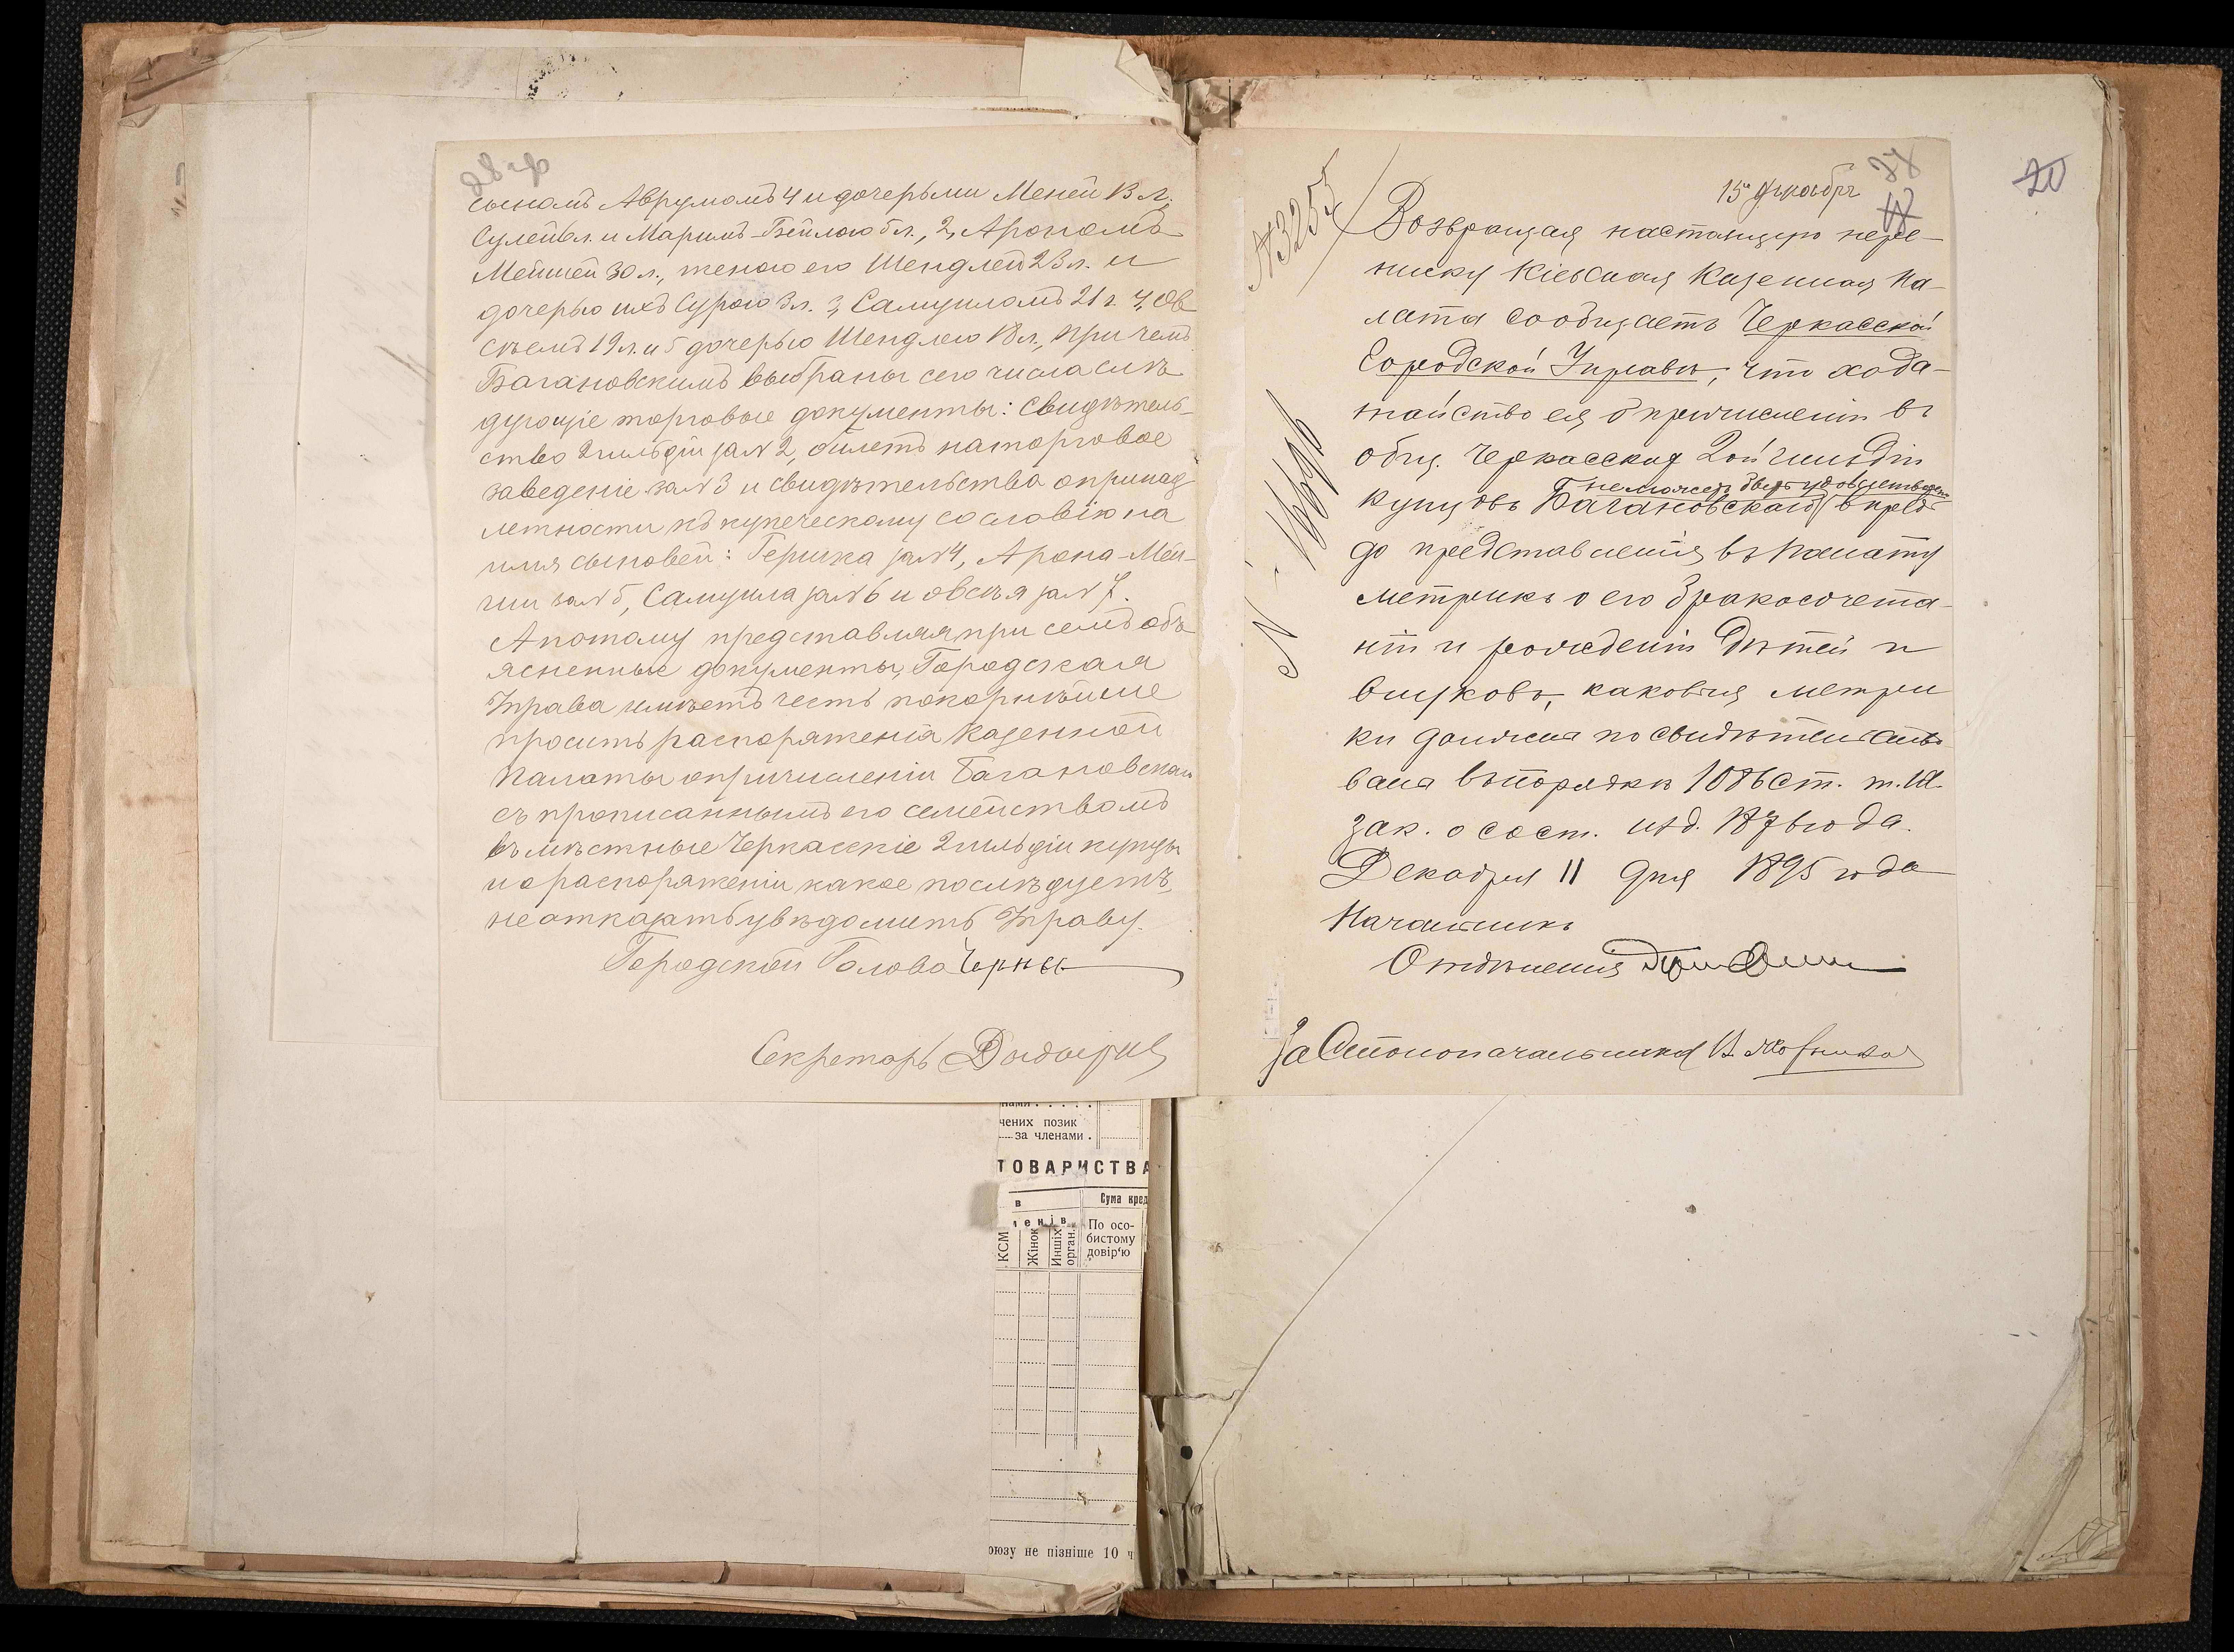 28 об
сыномъ Аврумомъ 4 и дочерьми Меней 13 л.,
Сулей 8 л. и Маримъ-Бейлою 5 л., 2, Арономъ
Мейшей 30 л., женою его Шендлей 23 л. и
дочерью ихъ Сурою 3 л. 3, Самуиломъ 21 г. 4, Ов
сѣемъ 19 л. и 5 дочерью Шендлею 18 л., при чемъ
Багановскимъ выбраны сего числа слѣ
дующіе торговые документы: свидѣтель-
ство 2 гильдіи за № 2, билетъ на торговое
заведеніе за № 3 и свидѣтельства о принад
лежности къ купеческому сословію на
имя сыновей: Гершка за № 4, Арона-Мей-
ши за № 5, Самуила за № 6 и Овсѣя за № 7.
А потому представляя при семъ объ
ясненные документы, Городская
Управа имѣетъ честь покорнѣйше
просить распоряженія Казенной
Палаты о причисленіи Багановскаго
съ прописаннымъ его семействомъ
въ мѣстные Черкасскіе 2 гильдіи купцы
и о распоряженіи какое послѣдуетъ,
не отказать увѣдомить Управу.
Городской Голова
Секретарь
20
15 Декабря
№ 3255
Возвращая настоящую пере-
писку Кіевская Казенная Па-
лата сообщаетъ Черкасской
Городской Управѣ, что хода-
тайство ея о причисленіи въ
общ. Черкасскихъ 2ой гильдіи
не можетъ быть удовлетворено
купцовъ Багановскаго впредь
до представленія въ Палату
метрикъ о его бракосочета-
ніи и рожденіи дѣтей и
внуковъ, каковыя метри
ки должны по свидѣтельство
ваны въ порядкѣ 1086 ст. т. IX
зак. о сост. изд. 1876 года.
Декабря 11 дня 1895 года
Начальникъ
Отдѣленія
За Столоначальника
чених позик
за членами .
ТОВАРИСТВА
в
Сума кред
КСМ
Жінок
Инших
орган.
По осо-
бистому
довір'ю
оюзу не пізніше 10 ч